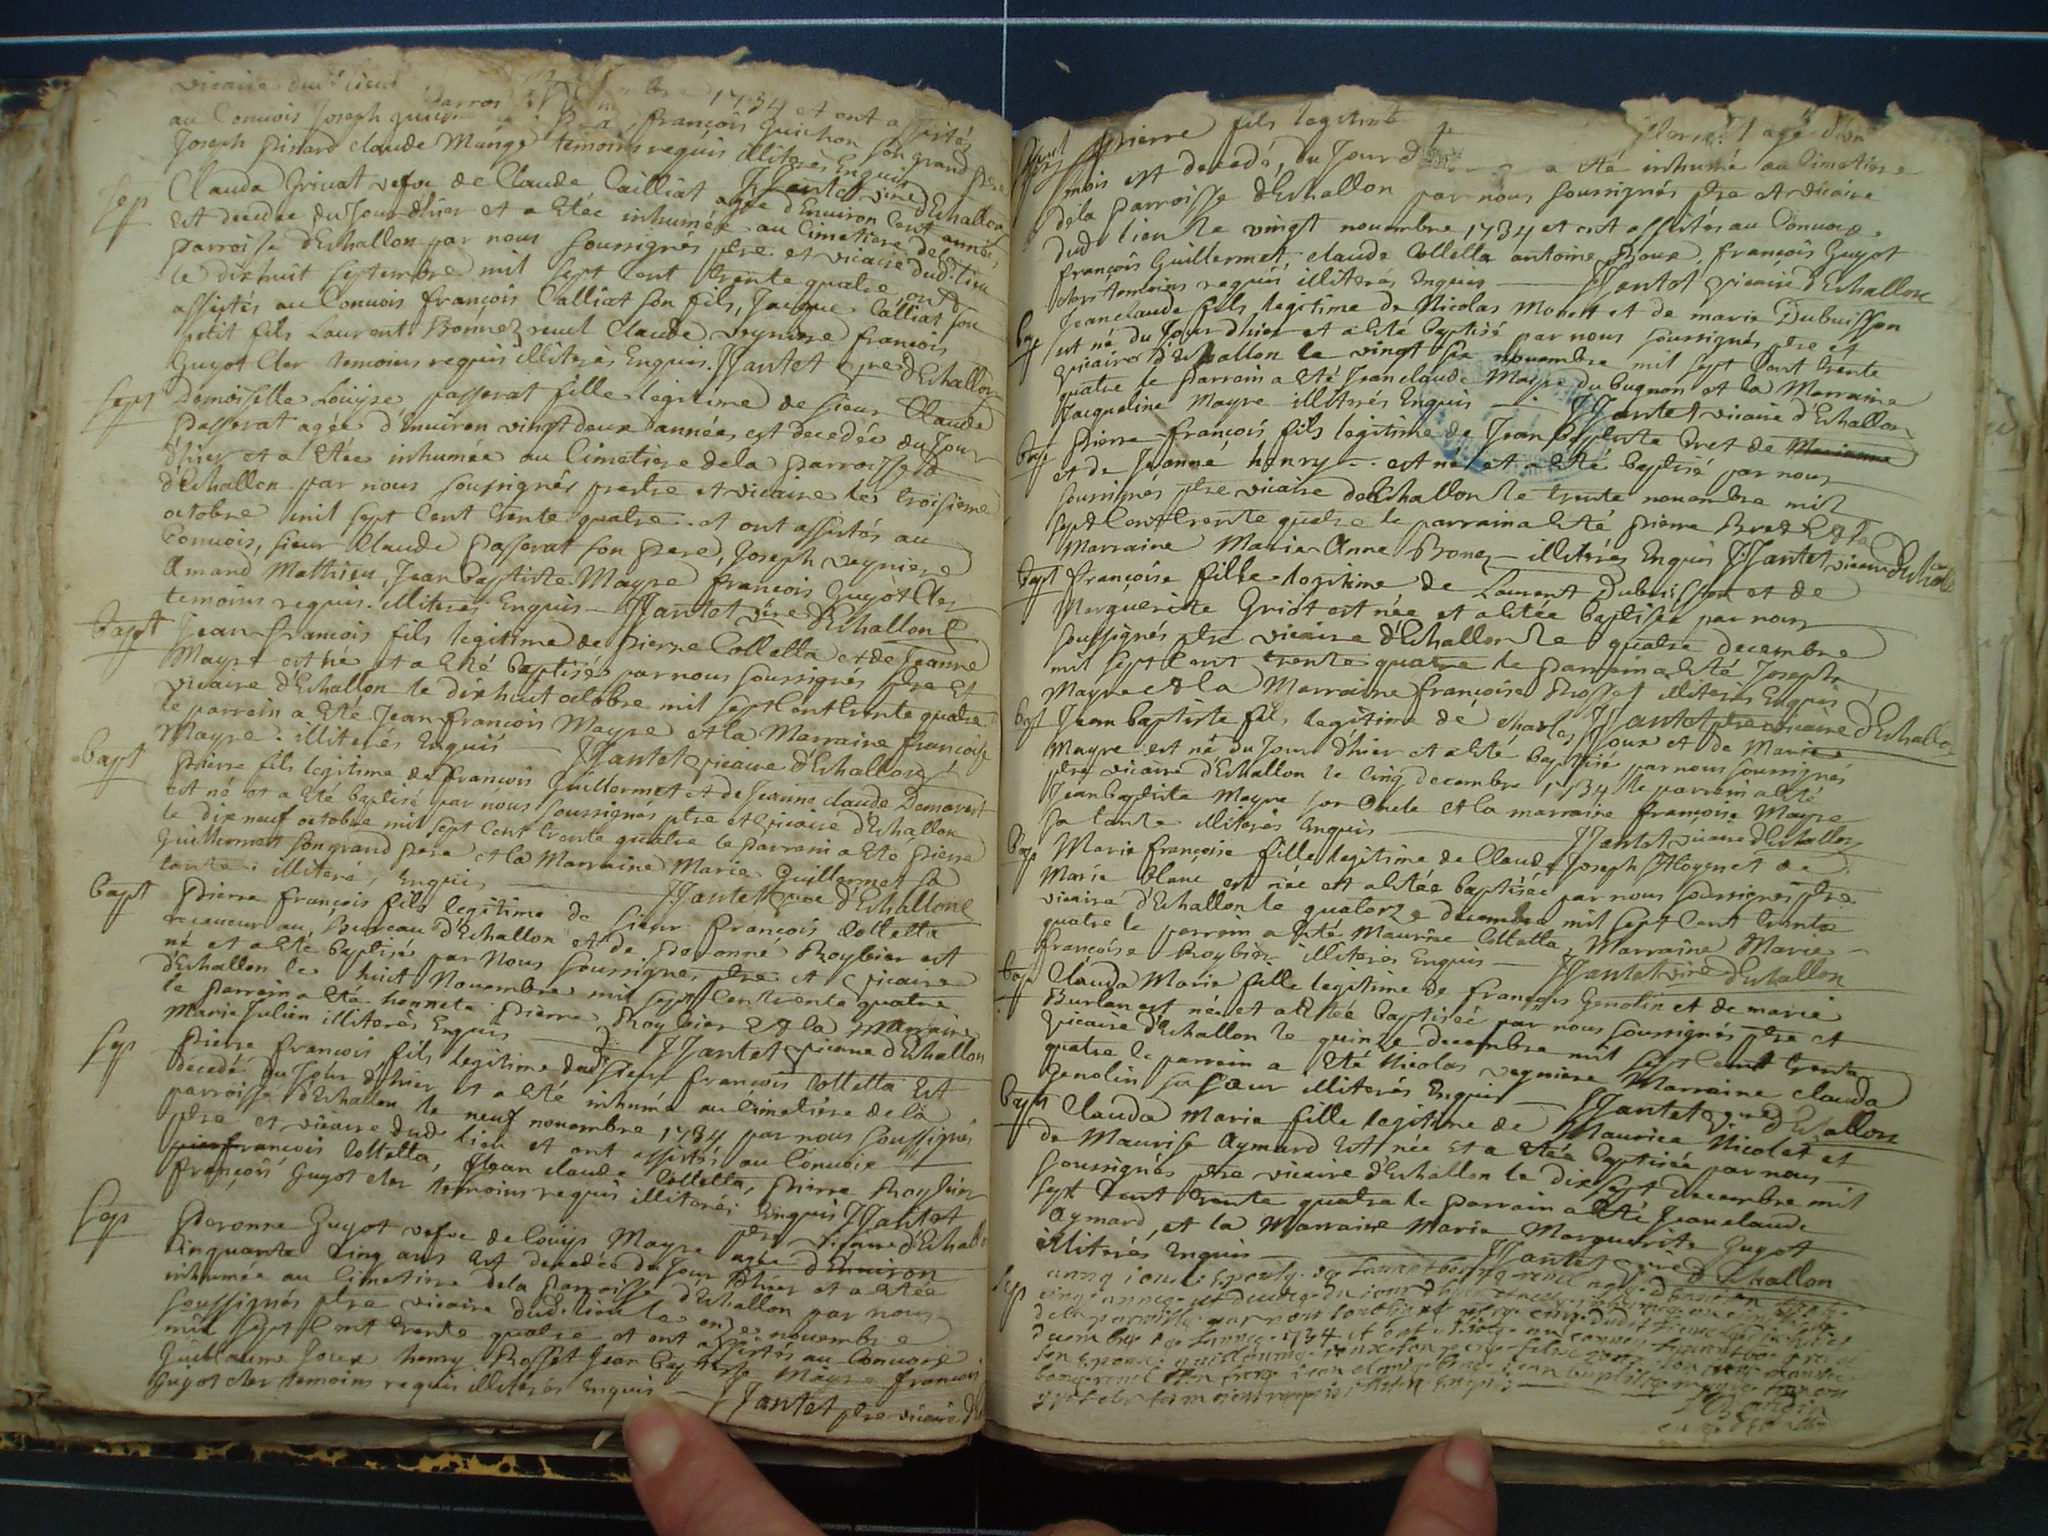 vicaire dud. lieu
au Convois Joseph 1734 et ont assistés
Joseph Pinard claude Mange françois Guichon son grand pere
temoins requis illiterés Enquis
Sep Clauda Grivat vefve de Claude Calliat agée d'Environ Cent années
JJantet vire d'Echallon
Est decedée du Jour d'hier et a Etée inhumée au Cimetiere de la
parroisse d'Echallon par nous soussignés ptre et vicaire dud. lieu
le dixhuit septembre mil sept Cent trente quatre, ont
assistés au Convois françois Calliat son fils, Jacque Calliat son
petit fils Laurent Bonnez claude veyniere francois
Guyot Cler temoins requis illiterés Enquis. JJantet d'Echallon
Sept Demoiselle Louyse passerat fille legitime de sieur Claude
Passerat agée d'environ vingt deux années est decedée du Jour
d'hier et a Etée inhumée au Cimetiere de la parroisse
d'Echallon par nous soussignés prestre et vicaire le troisieme
octobre mil sept Cent trente quatre et ont assistés au
Convois, sieur Claude Passerat son pere, Joseph veyniere
Amand Mathieu, Jean Baptiste Mayre francois Guyot Cler
temoins requis illiterés Enquis JJantet vire d'Echallon
Bapt Jean francois fils legitime de Pierre Colletta et de Jeanne
Mayre est né et a Eté baptisés par nous soussignés ptre Et
vicaire d'Echallon le dixhuit octobre mil sept Cent trente quatre
le parrain a Eté Jean francois Mayre et la Marraine francoise
Mayre illiterés Enquis JJantet vicaire d'Echallon
Bapt Pierre fils legitime de francois Guillermet et de Jeanne claude
est né et a Eté baptisé par nous soussignés ptre et vicaire d'Echallon
le dix neuf octobre mil sept Cent trente quatre le parrain a Eté Pierre
Guillermet son grand pere et la Marraine Marie Guillermet sa
tante illiterés Enquis JJantet d'Echallon
Bapt Pierre francois fils legitime de sieur francois Colletta
receveur au Bureau d'Echallon et de Peronne Roybier est
né et a Eté baptisé par Nous soussignes ptre et vicaire
d'Echallon le huict Novembre mil sept Cent trente quatre
le Parrain a Eté honneste Pierre Roybier Et la Marraine
Marie Julien illiterés Enquis JJantet vicaire d'Echallon
Sep Pierre francois fils legitime dud. sieur francois Colletta Est
decedé du Jour d'hier et a Eté inhumé au Cimetiere de la
parroisse d'Echallon le neuf novembre 1734 par nous soussignés
ptre et vicaire dud. lieu et ont assistés au Convois
francois Colletta, Jean claude Colletta, Pierre Roybier
françois Guyot cler temoins requis illiterés Enquis JJantet
ptre vicaire d'Echall
Sep Peronne Guyot vefve de Louys Mayre agée d'Environ
Cinquante Cinq ans est decedée du Jour d'hier et a Etée
inhumée au Cimetiere de la Parroisse d'Echallon par nous
soussignés ptre vicaire dud. lieu le onze novembre
mil sept Cent trente quatre et ont assistés au Convois
Guillaume Joux henry Rosset Jean Baptiste Mayre francois
Guyot cler temoins requis illiterés Enquis JJantet ptre vicaire
Sept Pierre fils legitime agé d'un
mois est decedé, du Jour a Eté inhumé au Cimetiere
de la parroisse d'Echallon par nous soussignés ptre et vicaire
dud. lieu le vingt novembre 1734 et ont assistés au Convois
françois Guillermet, claude Colletta antoine Joux, francois Guyot
cler temoins requis illiterés Enquis JJantet vicaire d'Echallon
Bap Jean claude fils legitime de Nicolas Monet et de marie Dubuisson
est né du Jour d'hier et a Eté baptisé par nous soussignés ptre et
vicaire d'Echallon le vingt six novembre mil sept Cent trente
quatre le Parrain a Eté Jean claude Mayre du bugnon et la Marraine
Jacqueline Mayre illiterés Enquis JJantet vicaire d'Echallon
Bap Pierre françois fils legitime de Jean Baptiste Bret de Marianne
et de Jeanne henry est né et a Eté baptisé par nous
soussignés ptre vicaire d'Echallon le trente novembre mil
sept Cent trente quatre le parrain a Eté pierre Bret Et la
Marraine Marie Anne Bonez illiterés Enquis JJantet vicaire d'Echallon
Bapt Françoise fille legitime de Laurent Dubuisson et de
Marguerite Griot est née et a Etée Baptisée par nous
soussignés ptre vicaire d'Echallon le quatre decembre
mil sept Cent trente quatre le Parrain a Eté Joseph
Mayre et la Marraine francoise Rosset illiterés Enquis
JJantet ptre vicaire d'Echallon
Bapt Jean baptiste fils legitime de charles Joux et de Marie
Mayre est né du Jour d'hier et a Eté baptisé par nous soussignés
ptre vicaire d'Echallon le cinq decembre 1734 le parrain a Eté
Jean baptiste Mayre son Oncle et la marraine francoise Mayre
sa tante illiterés Enquis JJantet vicaire d'Echallon
Bap Marie françoise fille legitime de Claude Joseph et de
Marie Blanc est née et a Etée baptisée par nous soussignés ptre
vicaire d'Echallon le quatorze decembre mil sept Cent trente
quatre le parrain a Eté Maurise Colletta, Marraine Marie
françoise Roybier illiterés Enquis JJantet vire d'Echallon
Bap Clauda Marie fille legitime de françois Genolin et de marie
Burlan est née et a Etée baptisée par nous soussignés ptre et
vicaire d'Echallon le quinze decembre mil sept Cent trente
quatre le parrain a Eté Nicolas veyniere Marraine clauda
Genolin sa soeur illiterés Enquis JJantet d'Echallon
Bapt Clauda Marie fille legitime de Maurice Nicolet et
de Maurise Aymard Est née et a Etée Baptisée par nous
soussignés ptre vicaire d'Echallon le dix sept decembre mil
sept Cent trente quatre le parrain a Eté Jean claude
Aymard, et la Marraine Marie Marguerite Guyot
illiterés Enquis JJantet vire d'Echallon
Sep
decembre de l'année 1734 et ont assistés au convois